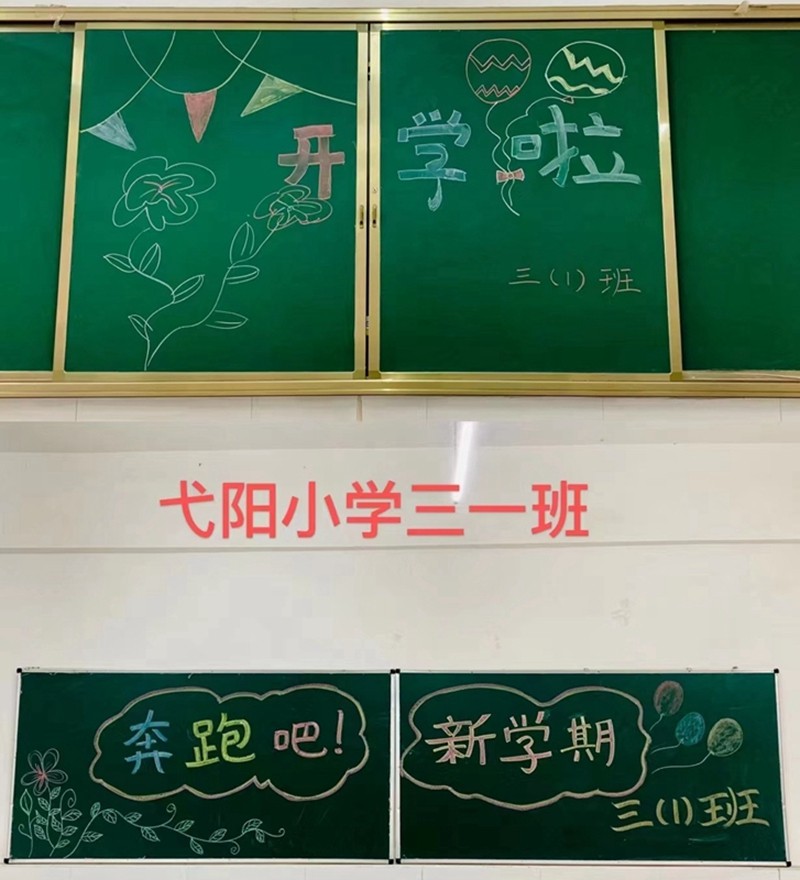 开学啦
三(1)班
弋阳小学三一班
奔跑吧!
新学期
三(1)班